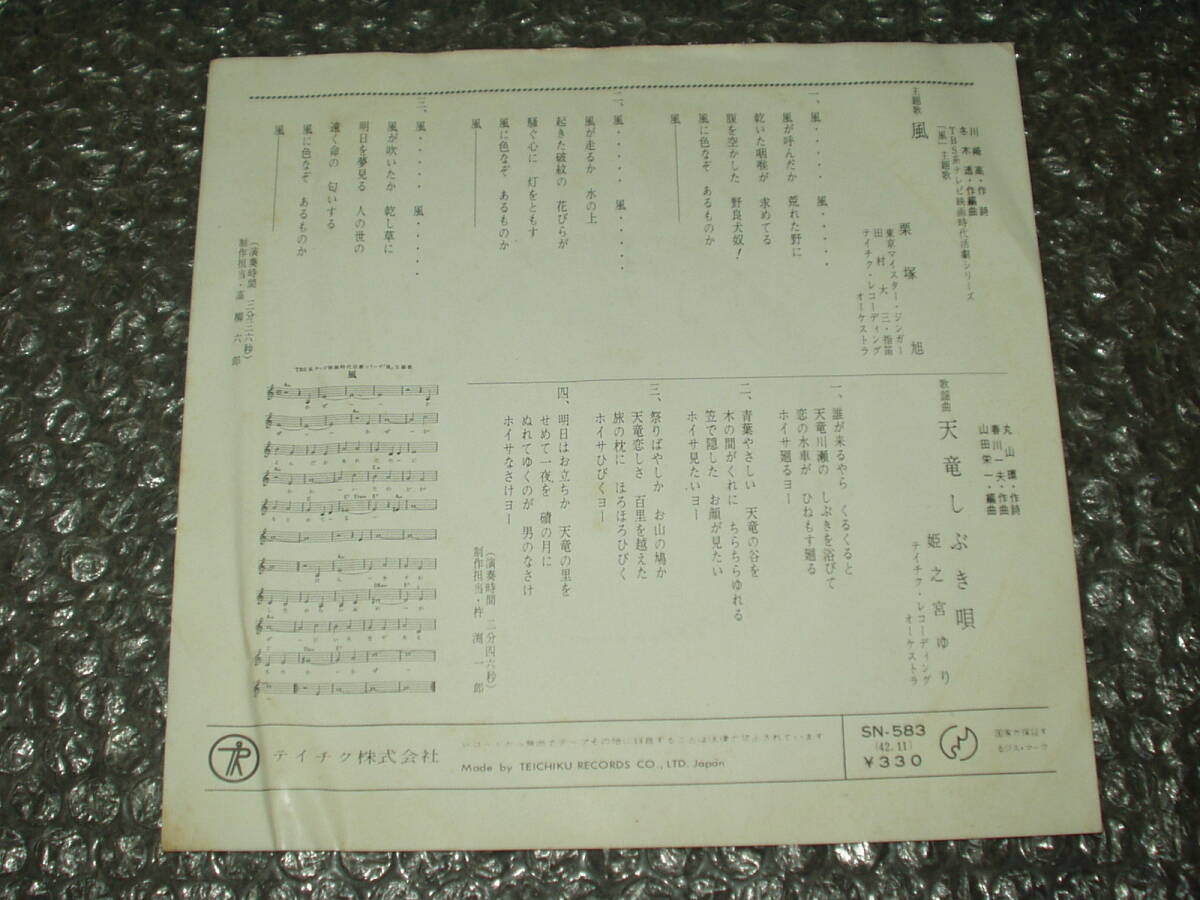 川崎 高・作詩
冬木 透・作編曲
TBS系テレビ映画時代活劇シリーズ
「風」主題歌
主題歌 風
栗塚旭
東京マイスター・ジンガー
田村大三・指笛
テイチク・レコーディング
オーケストラ
一、風・・・・・ 風・・・・・
風が呼んだか 荒れた野に
乾いた咽喉が 求めてる
腹を空かした 野良犬奴！
風に色なぞ あるものか
風
二、風・・・・・ 風・・・・・
風が走るか 水の上
起きた破紋の 花びらが
騒ぐ心に 灯をともす
風に色なぞ あるものか
風
三、風・・・・・ 風・・・・・
風が吹いたか 乾し草に
明日を夢見る 人の世の
遠く命の 匂いする
風に色なぞ あるものか
風
（演奏時間 三分三六秒）
制作担当・高柳六郎
TBS系テレビ映画時代活劇シリーズ「風」主題歌
風
丸山 ・作詩
春川一夫・作曲
山田栄一・編曲
歌謡曲 天竜しぶき唄
姫之宮ゆり
テイチク・レコーディング
オーケストラ
一、誰が来るやら くるくると
天竜川瀬の しぶきを浴びて
恋の水車が ひねもす廻る
ホイサ廻るヨー
二、青葉やさしい 天竜の谷を
木の間がくれに ちらちらゆれる
笠で隠した お顔が見たい
ホイサ見たいヨー
三、祭りばやしか お山の鳩か
天竜恋しさ 百里を越えた
旅の枕に ほろほろひびく
ホイサひびくヨー
四、明日はお立ちか 天竜の里を
せめて一夜を 磧の月に
ぬれてゆくのが 男のなさけ
ホイサなさけヨー
（演奏時間 二分四六秒）
制作担当・杵淵一郎
テイチク株式会社
レコードから無断でテープその他に録音することは法律で禁止されています
Made by TEICHIKU RECORDS CO., LTD. Japan
SN-583
(42.11)
¥330
国家が保証す
るジス・マーク